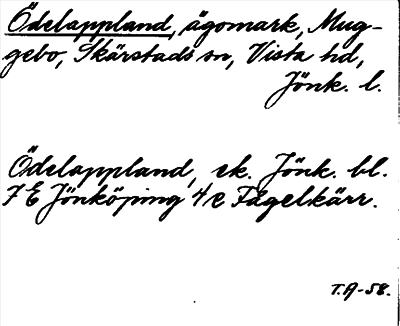 Ödelappland, ägomark, Mug-
gebo, Skärstads sn, Vista hd,
Jönk. l.
Ödelappland, ek. Jönk. bl.
7 E Jönköping 4 e Fagelkärr.
T.A-58.